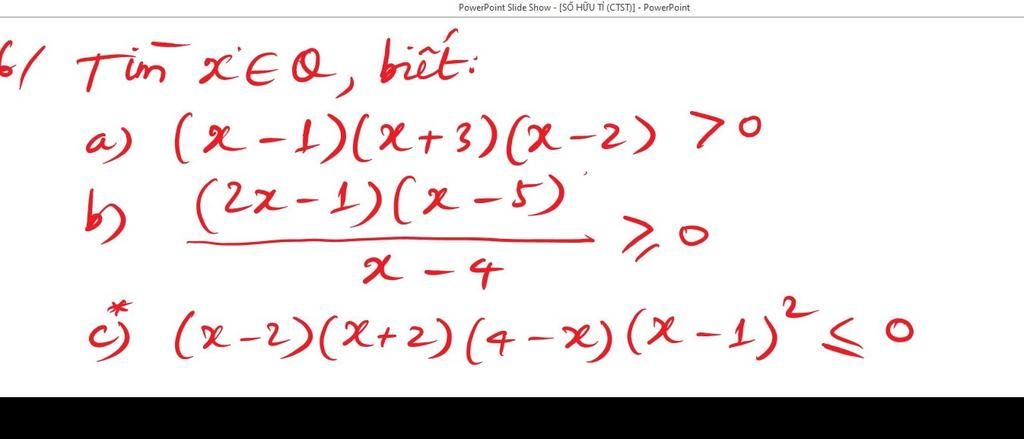 PowerPoint Slide Show - [SỐ HỮU TỈ (CTST)] - PowerPoint
6/ Tìm x ∈ Q, biết:
a) (x - 1)(x + 3)(x - 2) > 0
b) (2x - 1)(x - 5)
x - 4
≥ 0
c*) (x - 2)(x + 2)(4 - x)(x - 1)² ≤ 0